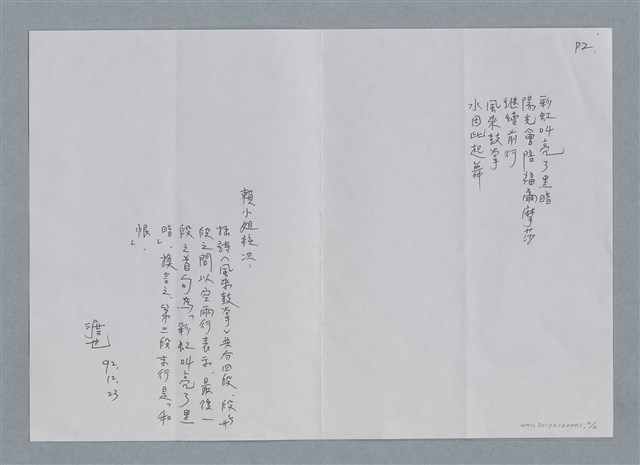 P2.
彩虹叫亮了黑暗
陽光會陪福爾摩莎
繼續前行
風來鼓掌
水因此起舞
賴小姐粧次：
拙詩〈風來鼓掌〉共分四段、段與
段之間以空兩行表示。最後一
段之首句為「彩虹叫亮了黑
暗」，換言之，第三段末行是「和
恨」。
渡也
92.12.23